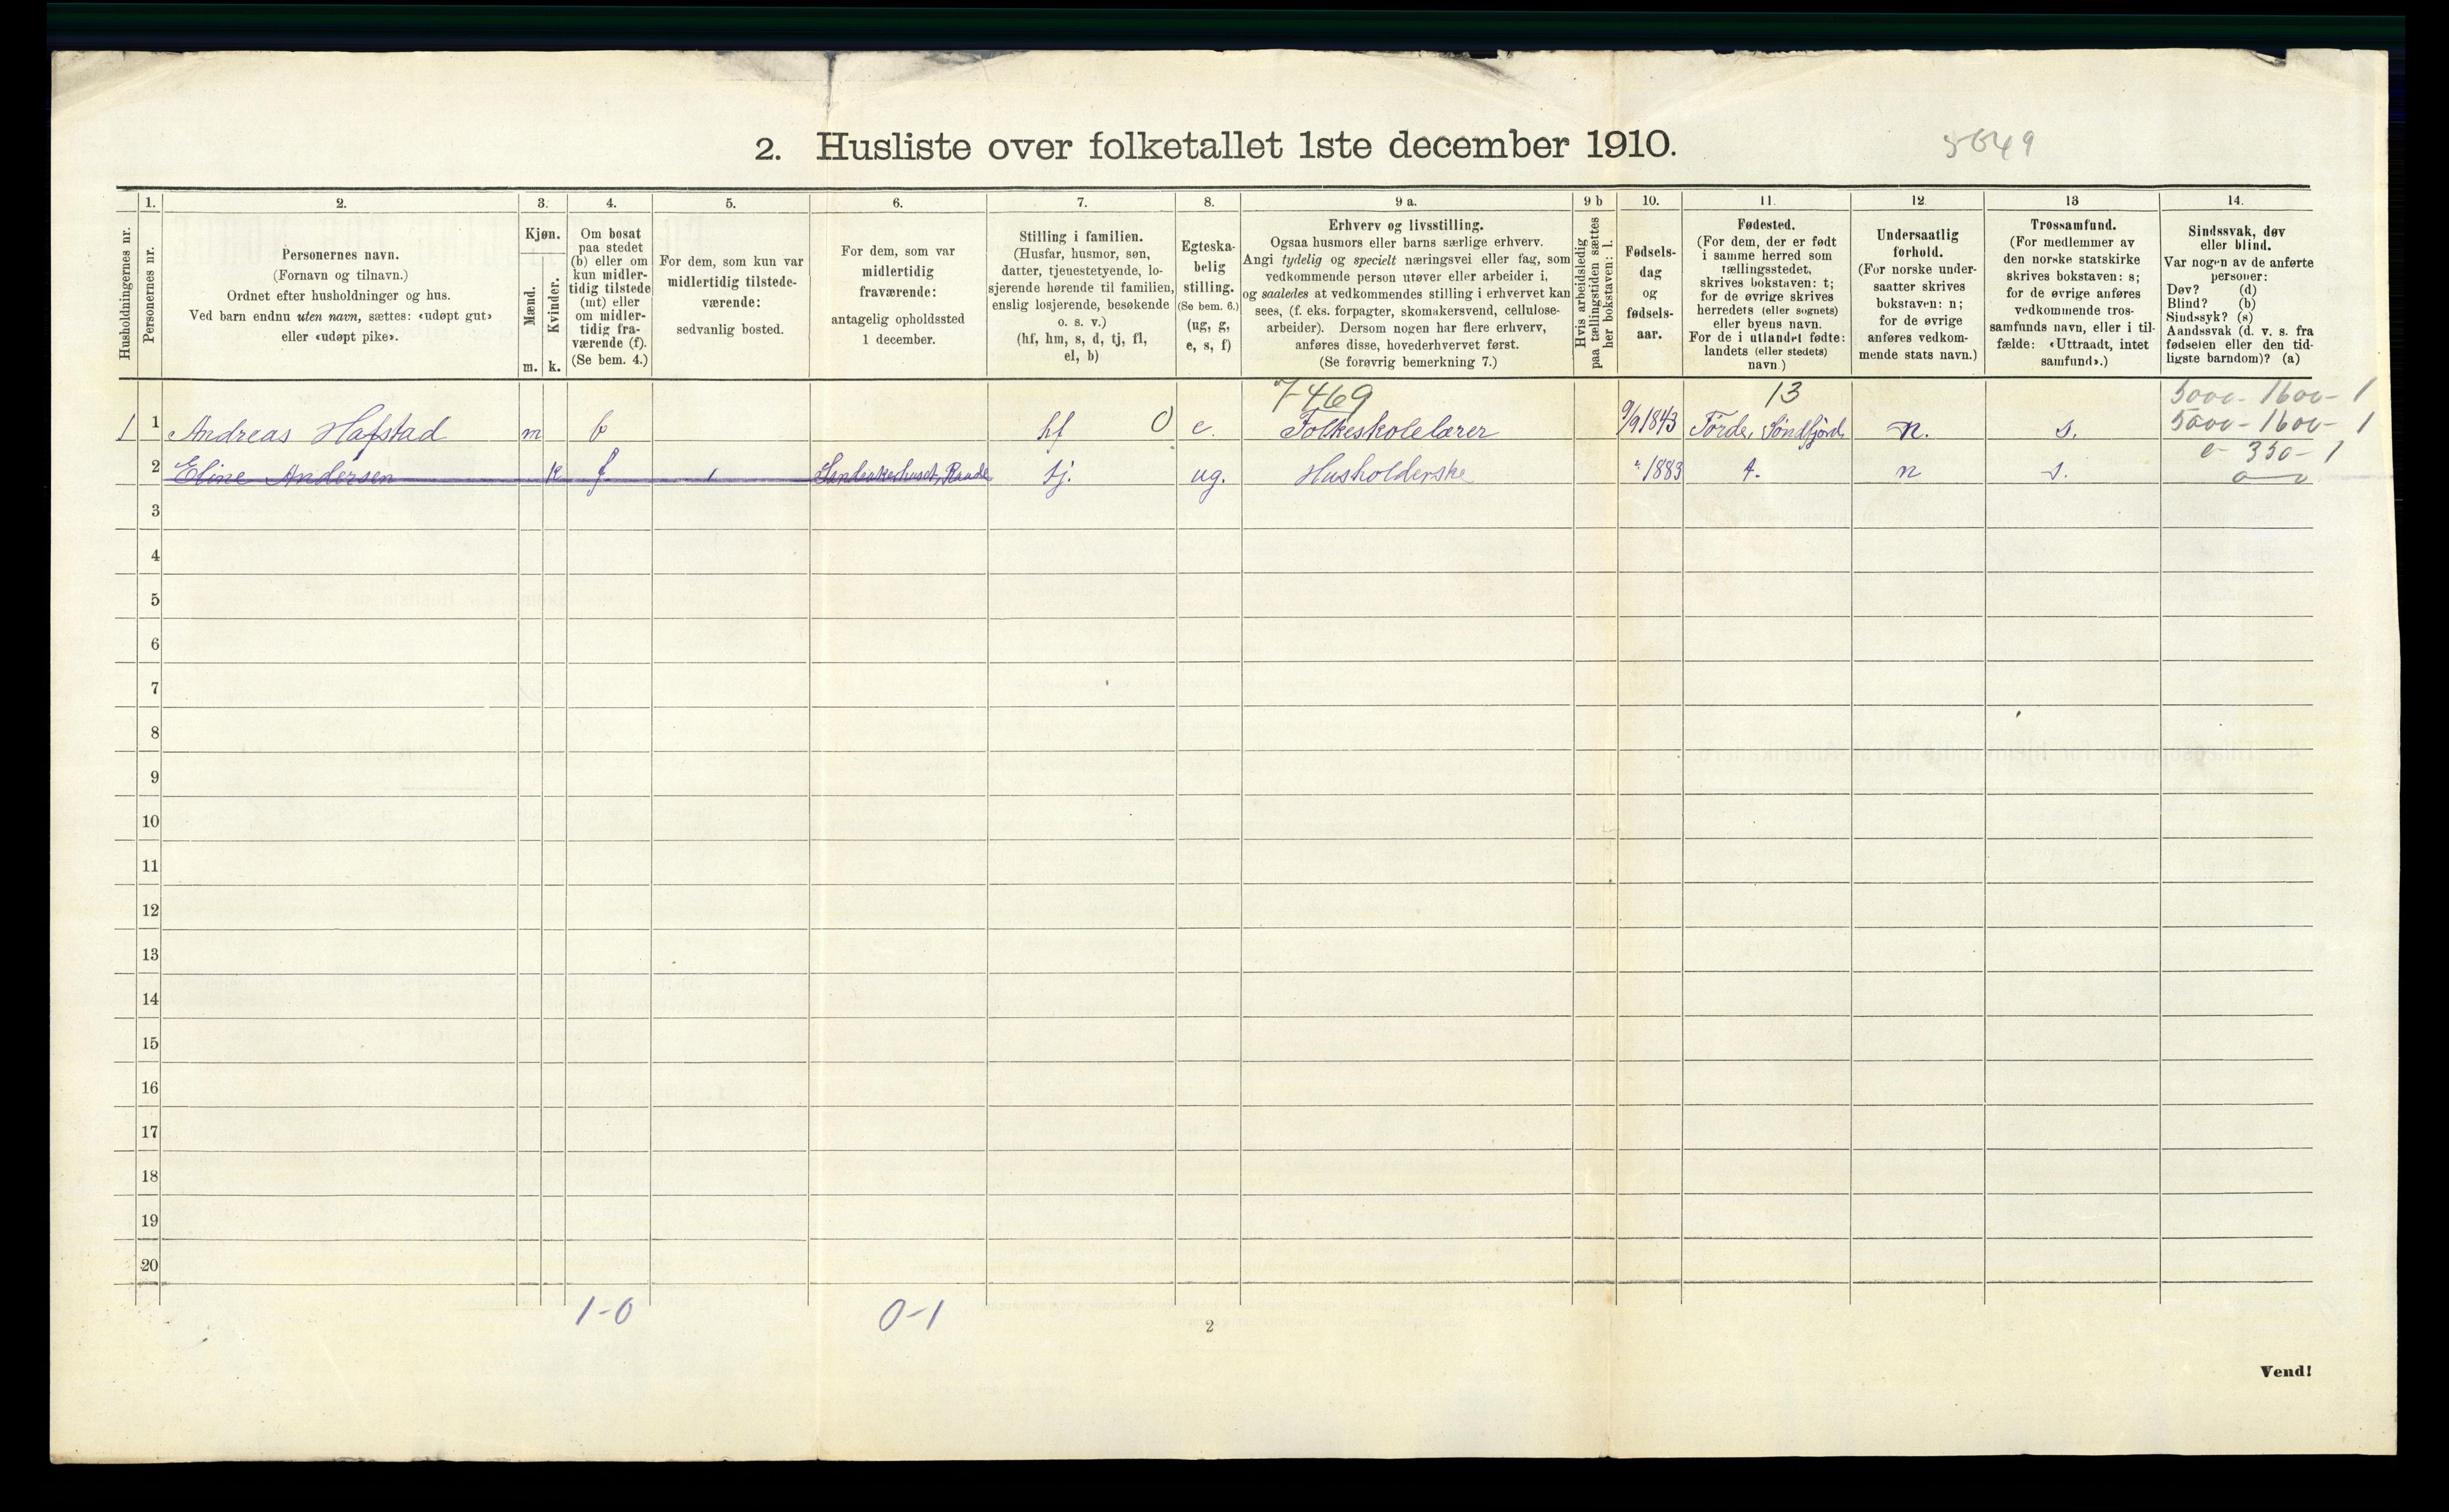 2. Husliste over folketallet 1ste december 1910.
1. 2. 3. 4. 5. 6. 7. 8. 9 a. 9 b 10. 11. 12. 13 14.
Husholdningernes nr.
Personernes nr.
Personernes navn.
(Fornavn og tilnavn.)
Ordnet efter husholdninger og hus.
Ved barn endnu uten navn, sættes: «udøpt gut»
eller «udøpt pike».
Kjøn.
Mænd.
Kvinder.
m. k.
Om bosat
paa stedet
(b) eller om
kun midler-
tidig tilstede
(mt) eller
om midler-
tidig fra-
værende (f).
(Se bem. 4.)
For dem, som kun var
midlertidig tilstede-
værende:
sedvanlig bosted.
For dem, som var
midlertidig
fraværende:
antagelig opholdssted
1 december.
Stilling i familien.
(Husfar, husmor, søn,
datter, tjenestetyende, lo-
sjerende hørende til familien,
enslig losjerende, besøkende
o. s. v.)
(hf, hm, s, d, tj, fl,
el, b)
Egteska-
belig
stilling.
(Se bem. 6.)
(ug, g,
e, s, f)
Erhverv og livsstilling.
Ogsaa husmors eller barns særlige erhverv.
Angi tydelig og specielt næringsvei eller fag, som
vedkommende person utøver eller arbeider i,
og saaledes at vedkommendes stilling i erhvervet kan
sees, (f. eks. forpagter, skomakersvend, cellulose-
arbeider). Dersom nogen har flere erhverv,
anføres disse, hovederhvervet først.
(Se forøvrig bemerkning 7.)
Hvis arbeidsledig
paa tællingstiden sættes
her bokstaven: l.
Fødsels-
dag
og
fødsels-
aar.
Fødested.
(For dem, der er født
i samme herred som
tællingsstedet,
skrives bokstaven: t;
for de øvrige skrives
herredets (eller sognets)
eller byens navn.
For de i utlandet fødte:
landets (eller stedets)
navn.)
Undersaatlig
forhold.
(For norske under-
saatter skrives
bokstaven: n;
for de øvrige
anføres vedkom-
mende stats navn.)
Trossamfund.
(For medlemmer av
den norske statskirke
skrives bokstaven: s;
for de øvrige anføres
vedkommende tros-
samfunds navn, eller i til-
fælde: «Uttraadt, intet
samfund».)
Sindssvak, døv
eller blind.
Var nogen av de anførte
personer:
Døv? (d)
Blind? (b)
Sindssyk? (s)
Aandssvak (d. v. s. fra
fødselen eller den tid-
ligste barndom)? (a)
7-469 13 5000- 1600- 1
1 1 Andreas Hafstad m b hf 0 e. Folkeskolelærer 9/9 1843 Förde, Söndfjord. n. s. 5000- 1600- 1
0- 350- 1
2 Eline Andersen k f Raade tj. ug. Husholderske 1883 t. n s. 0 0
3
4
5
6
7
8
9
10
11
12
13
14
15
16
17
18
19
20
1-0 0-1
2
Vend!